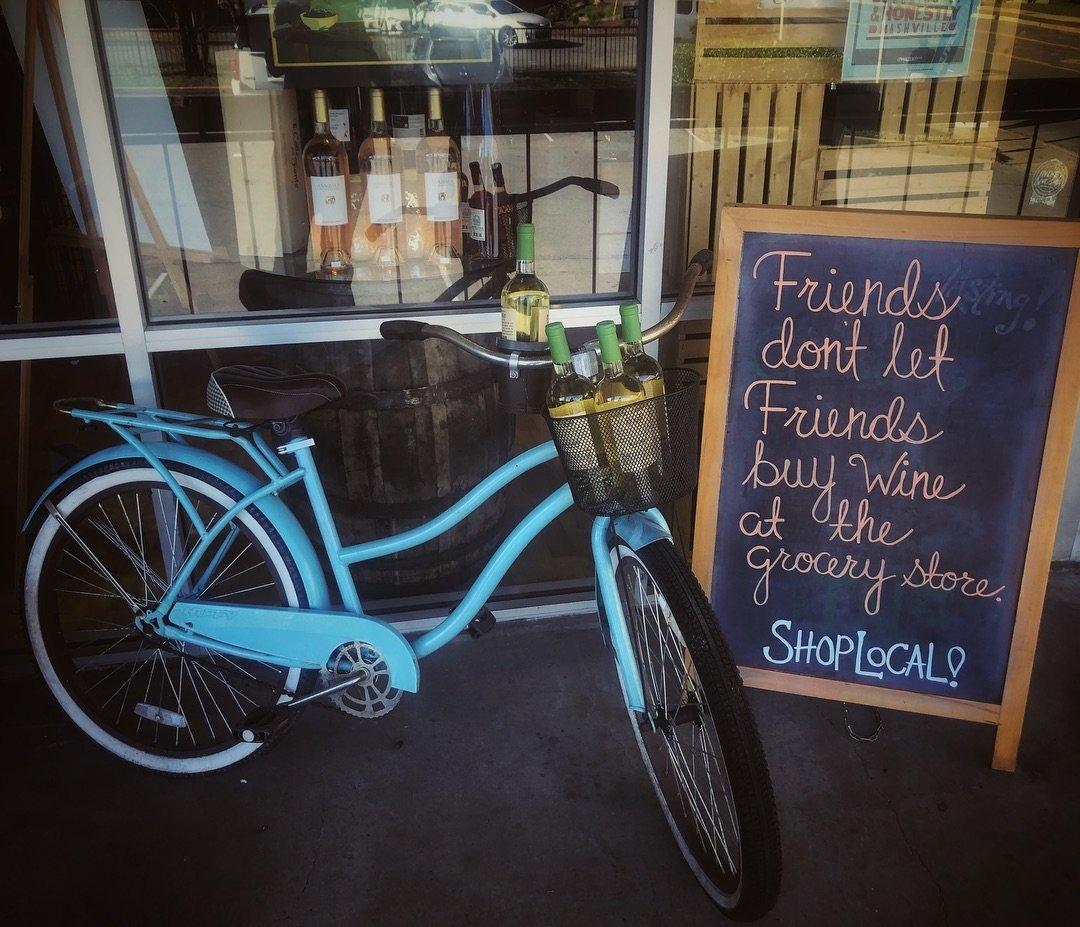 &HONESTLY
NASHVILLE
Friends
don't let
Friends
buy wine
at the
grocery store.
SHOP LOCAL!